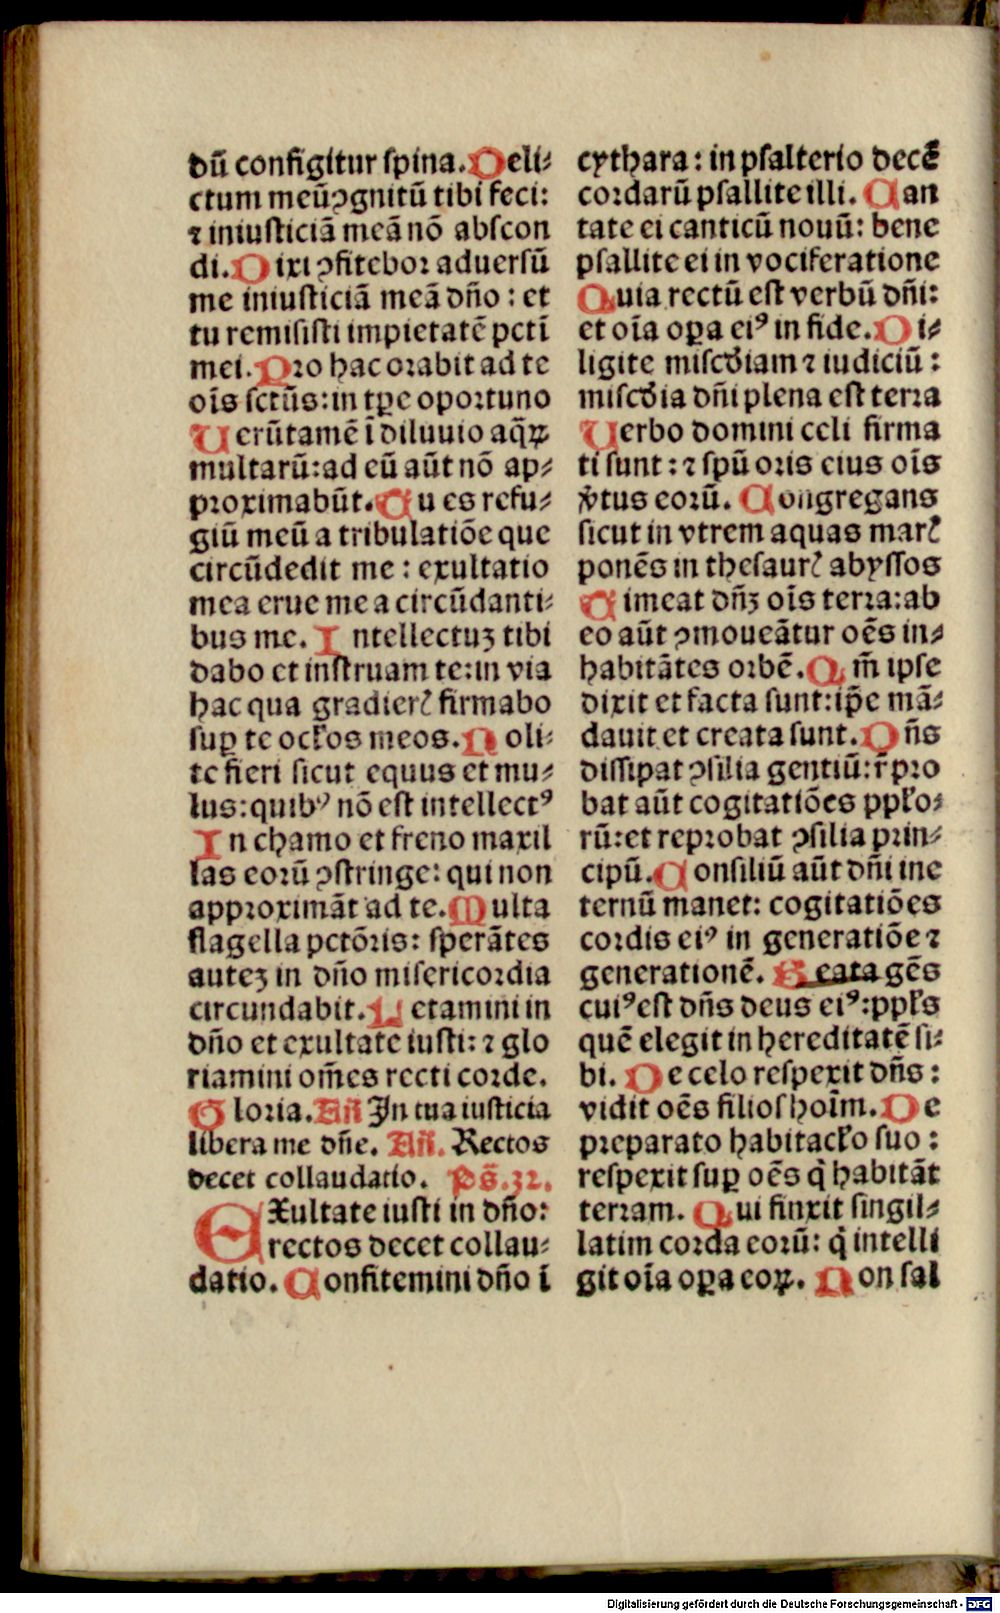 dū configitur ſpina. Deli⸗
ctum meū ꝯgnitū tibi feci:
⁊ iniuſticiā meā nō abſcon
di. Dixi ꝯfitebor aduerſū
me iniuſticiā meā dño : et
tu remiſiſti impietatē pcti̅
mei. Pro hac orabit ad te
oīs ſctūs: in tp̄e oportuno
Uerūtamē ī diluuio aq̄ꝝ
multarū: ad eū aūt nō ap⸗
proximabūt. Tu es refu⸗
giū meū a tribulatiōe que
circūdedit me : exultatio
mea erue me a circūdanti⸗
bus me. Intellectuꝫ tibi
dabo et inſtruam te: in via
hac qua gradierꝭ firmabo
ſuꝑ te ocło̅s meos. Noli⸗
te fieri ſicut equus et mu⸗
lus: quibꝰ nō eſt intellectꝰ
In chamo et freno maxil
las eorū ꝯſtringe: qui non
approximāt ad te. Multa
flagella pctōris: ſperātes
auteꝫ in dño miſericordia
circundabit. Letamini in
dño et exultate iuſti: ⁊ glo
riamini om̄es recti corde.
Gloria. Añ In tua iuſticia
libera me dñe. Añ. Rectos
decet collaudatio. Pṡ. 32.
EXultate iuſti in dño:
rectos decet collau⸗
datio. Confitemini dño ī
cythara: in pſalterio decē
cordarū pſallite illi. Can
tate ei canticū nouū: bene
pſallite ei in vociferatione
Quia rectū eſt verbū dñi:
et oīa oꝑa eiꝰ in fide. Di⸗
ligite miſcd̄iam ⁊ iudiciū :
miſcd̄ia dñi plena eſt terra
Uerbo domini celi firma
ti ſunt : ⁊ ſpū oris eius oīs
v̓tus eorū. Congregans
ſicut in vtrem aquas marꝭ
ponēs in theſaurꝭ abyſſos
Timeat dñꝫ oīs terra: ab
eo aūt ꝯmoueātur oēs in⸗
habitātes orbē. Qm̄ ipſe
dixit et facta ſunt: ip̄e mā⸗
dauit et creata ſunt. Dñs
diſſipat ꝯſilia gentiū: r̄pro
bat aūt cogitatiōes ppło⸗
rū: et reprobat ꝯſilia prin⸗
cipū. Conſiliū aūt dñi ine
ternū manet: cogitatiōes
cordis eiꝰ in generatiōe ⁊
generationē. Beata gēs
cuiꝰ eſt dñs deus eiꝰ: ppłs
quē elegit in hereditatē ſi⸗
bi. De celo reſpexit dñs :
vidit oēs filioſ hoīm. De
preparato habitacło ſuo :
reſpexit ſuꝑ oēs q̇ habitāt
terram. Qui finxit ſingil⸗
latim corda eorū: q̇ intelli
git oīa oꝑa eoꝝ. Non ſal
Digitalisierung gefördert durch die Deutsche Forschungsgemeinschaft - DFG